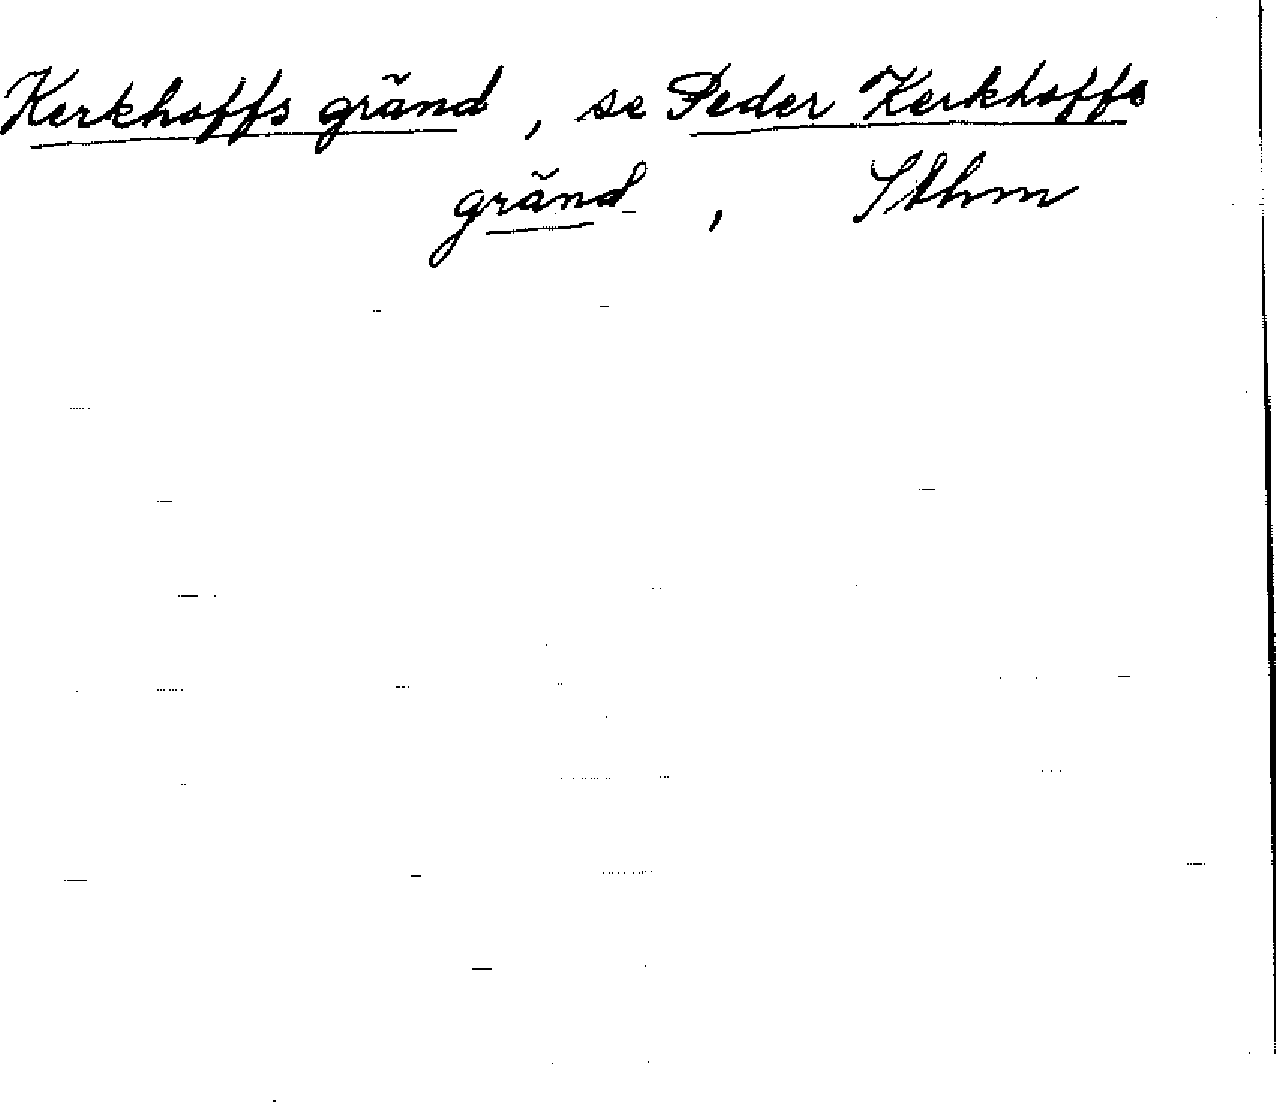 Kerkhoffs gränd, se Peder Kerkhoffs
gränd, Sthm